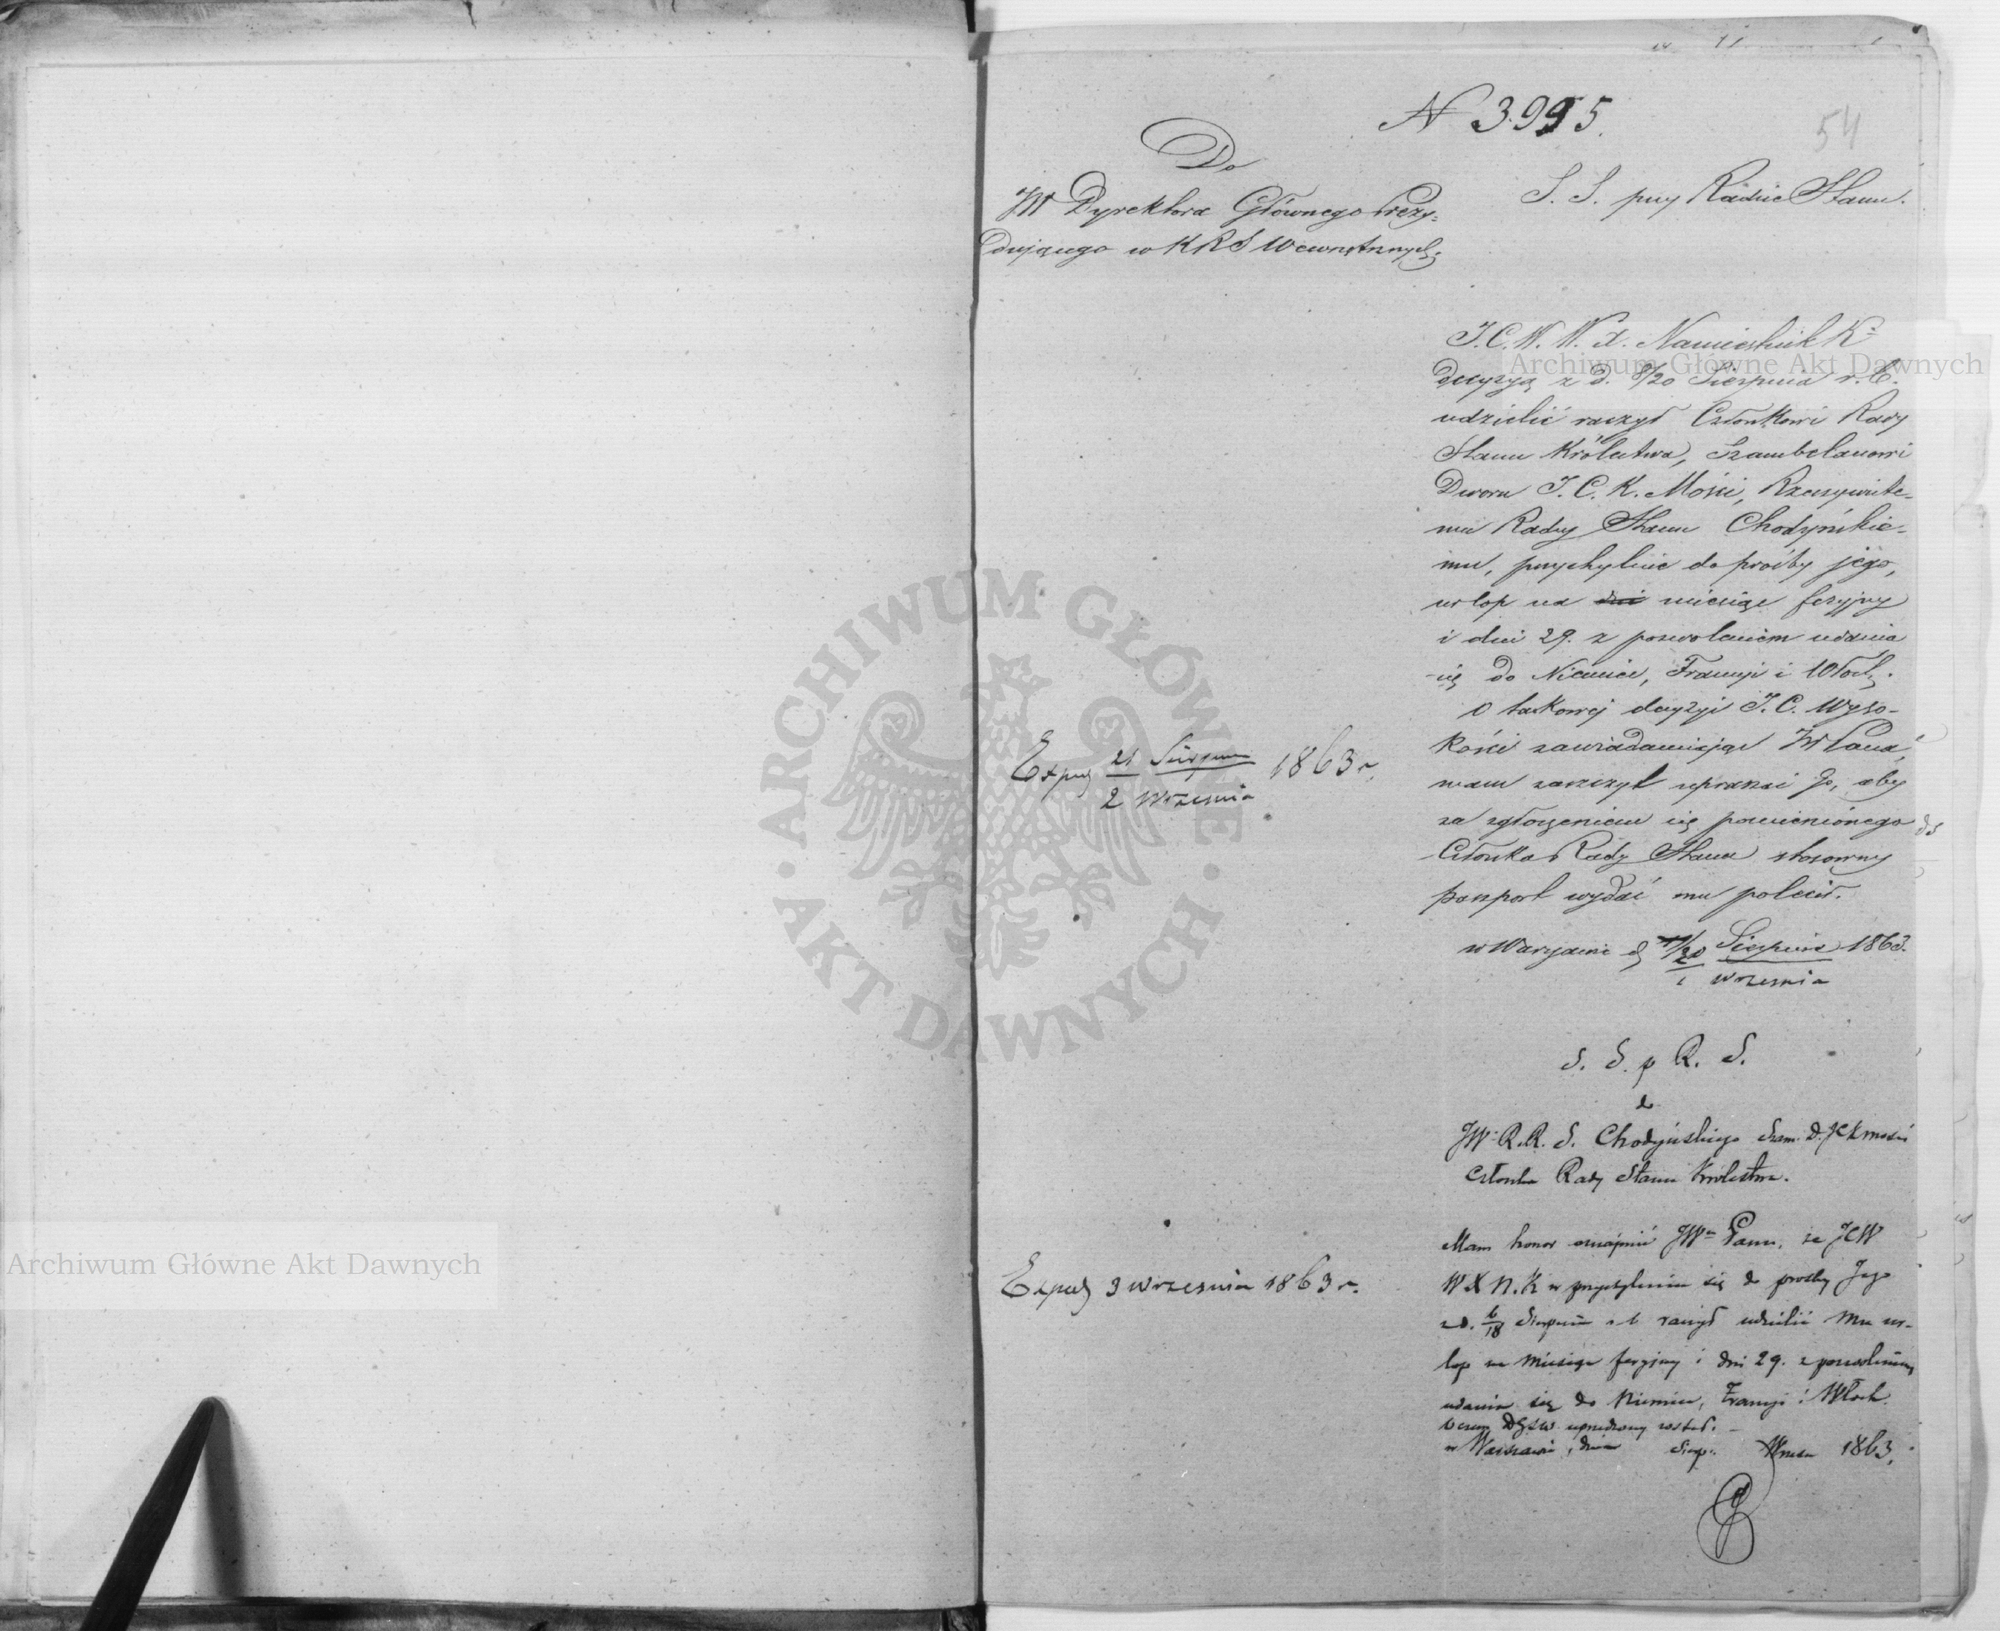 N 3995.
54
Do
JW Dyrektora Głównego Prezy-
dującego w KRS Wewnętrznych
S. S. przy Radzie Stanu.
J. C. W. W. X. Namiestnik K.
decyzyą z d. 8/20 Sierpnia r. b.
udzielić raczył Członkowi Rady
Stanu Królestwa, Szambelanowi
Dworu J. C. K. Mości, Rzeczywiste-
mu Radcy Stanu Chodyńskie-
mu, przychylnie do prośby jego,
urlop na dni miesiąc feryjny
i dni 29. z pozwoleniem udania
się do Niemiec, Francyi i Włoch.
O takowej decyzyi J. C. Wyso-
kości zawiadamiając JW Pana,
mam zaszczyt upraszać Go, aby
za zgłoszeniem się pomienionego
Członka Rady Stanu stosowny
paszport wydać mu polecił.
w Warszawie d. 20 Sierpnia 1863.
1 Września
Exped 21 Sierpnia 1863 r.
2 Września
S. S. p R. S.
do
JW. R. R. S. Chodyńskiego Szam. D. JCK Mości
Członka Rady Stanu Królestwa.
Mam honor oznajmić JW Panu, że JCW
W X N. K w przychyleniu się do prośby Jego
z d. 6/18 Sierpnia r b raczył udzielić Mu ur-
lop na miesiąc feryjny i dni 29. z pozwoleniem
udania się do Niemiec, Francyi i Włoch.
o czem DGSW uprzedzony został. –
w Warszawie, dnia Sierp. Wrześ 1863.
Exped 3 Września 1863 r.
Archiwum Główne Akt Dawnych
Archiwum Główne Akt Dawnych
ARCHIWUM GŁÓWNE
· AKT DAWNYCH ·